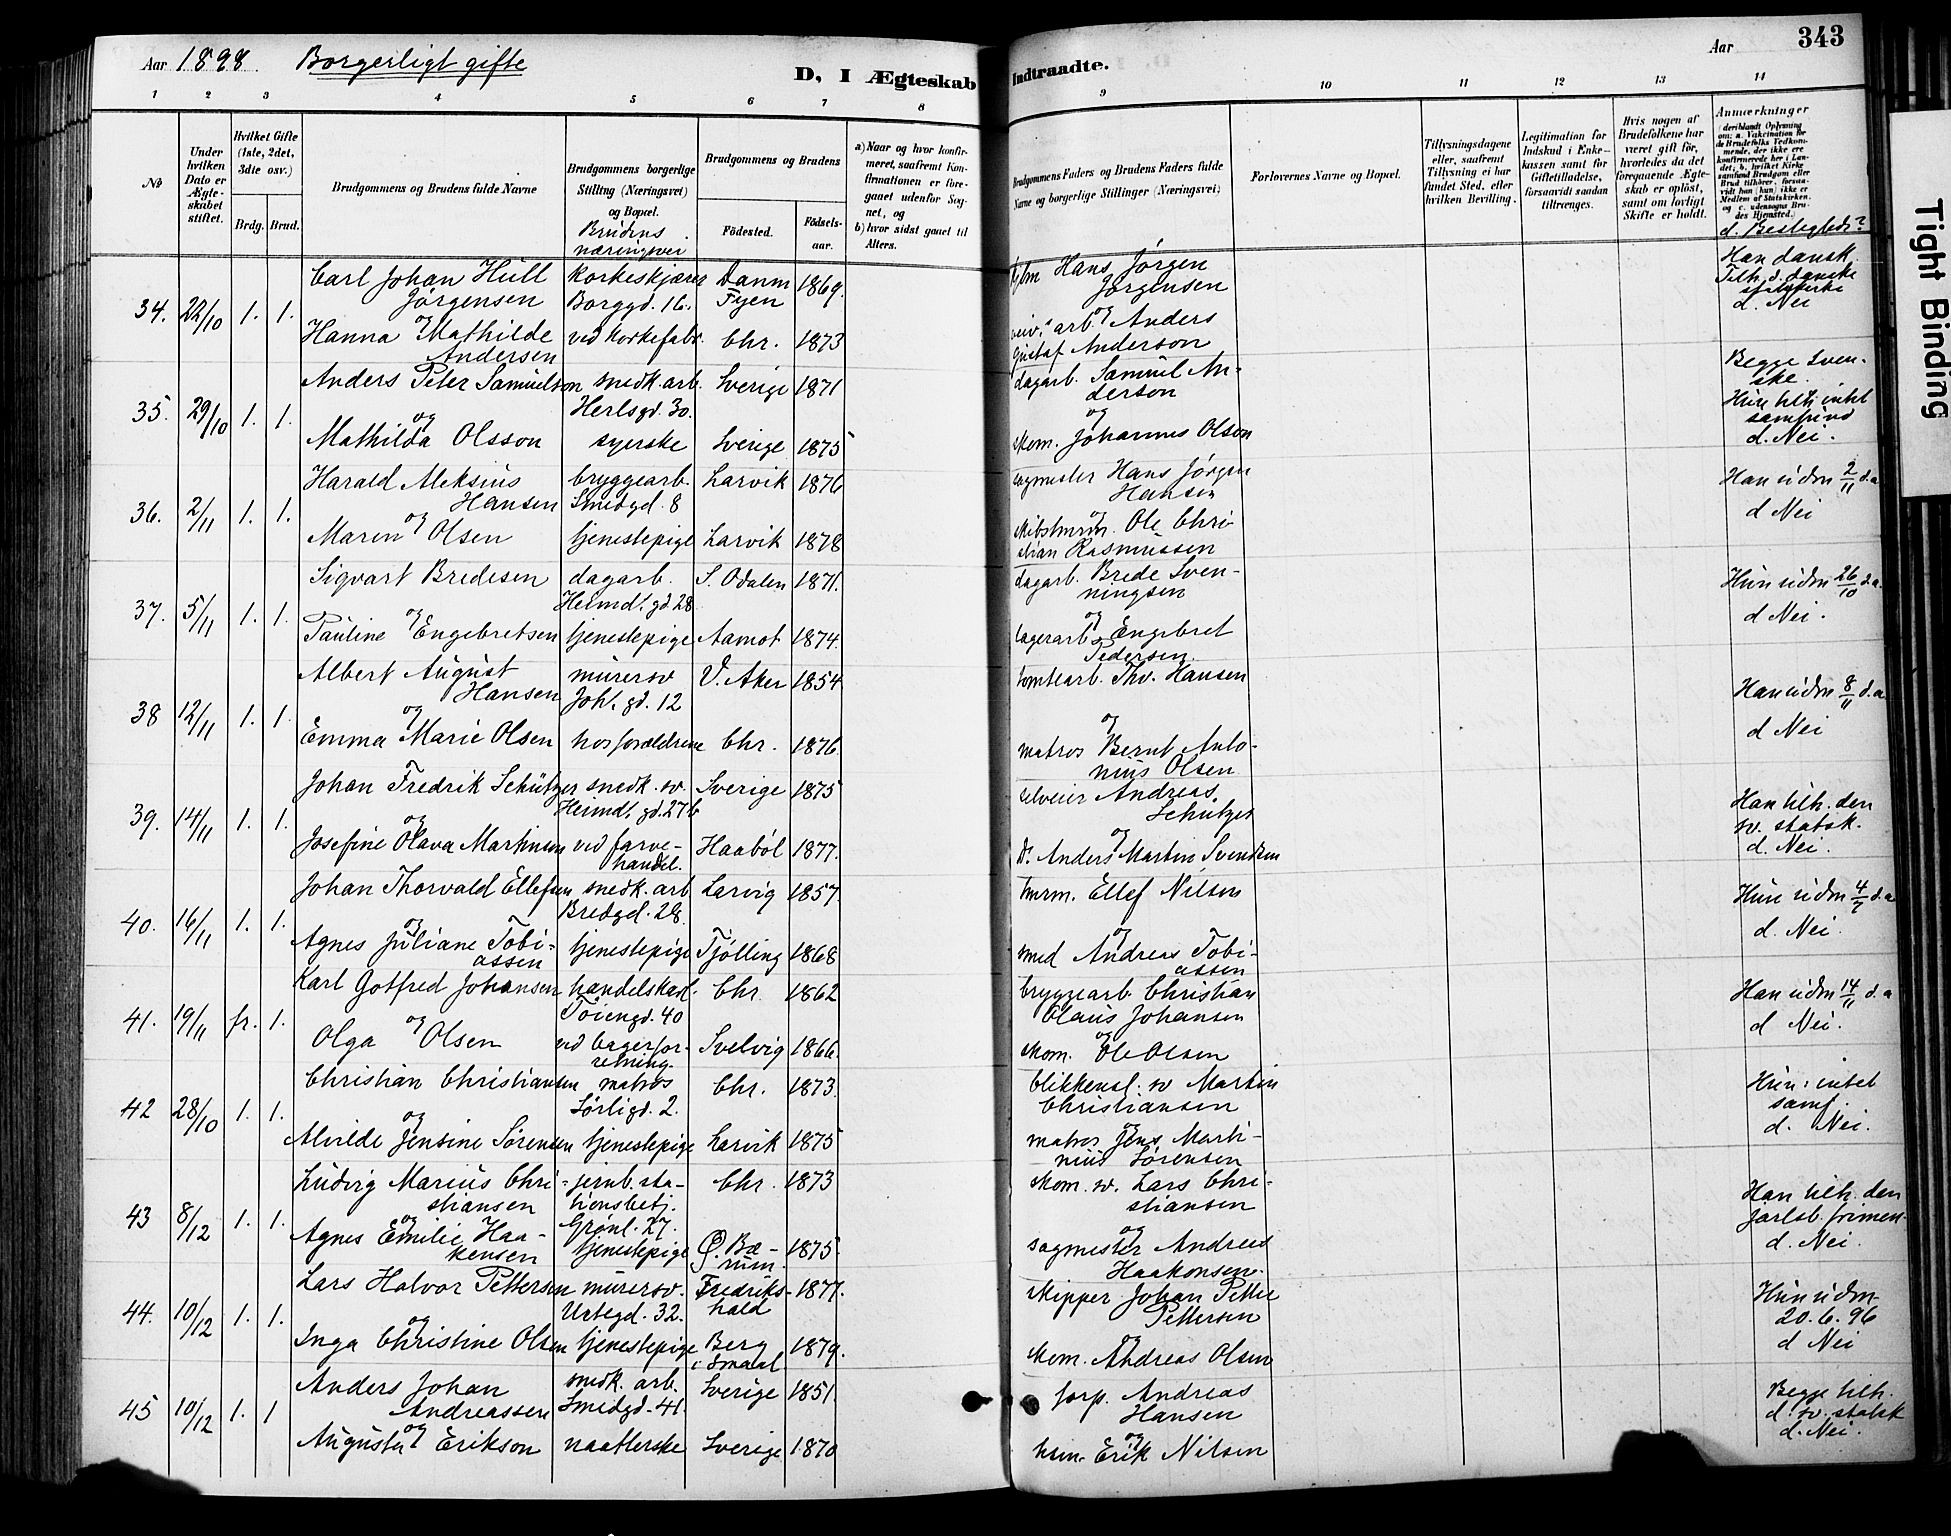 Aar 1898 Borgerligt gifte
D, I Ægteskab
1 2 3 4 5 6 7 8
Nº
Under hvilken Dato er Ægteskabet stiftet.
Hvilket Gifte (1ste, 2det, 3die osv.)
Brdg. Brud.
Brudgommens og Brudens fulde Navne
Brudgommens borgerlige Stilling (Næringsvei) og Bopæl.
Brudens næringsvei
Brudgommens og Brudens
Födested.
Födsels-aar.
a) Naar og hvor konfirmeret, saafremt Konfirmationen er foregaaet udenfor Sognet, og
b) hvor sidst gaaet til Alters.
34. 22/10 1. 1. Carl Johan Hüll Jørgensen korkeskjærer Borggd. 16. Danm Fyen 1869.
og
Hanna Mathilde Andersen ved korkefabr. Chr. 1873
35. 29/10 1. 1. Anders Peter Samuelson snedk. arb. Herlsgd. 30. Sverige 1871
og
Mathilda Olsson syerske Sverige 1875
36. 2/11 1. 1. Harald Aleksius Hansen bryggearb. Smedgd. 8 Larvik 1876
og
Maren Olsen tjenestepige Larvik 1878
37. 5/11 1. 1. Sigvart Bredesen dagarb. Heimd. gd 28 S. Odalen 1871.
og
Pauline Engebretsen tjenestepige Aamot 1874.
38 12/11 1. 1. Albert August Hansen murersv Joh. gd. 12 V. Aker 1854
og
Emma Marie Olsen hos forældrene Chr. 1876.
39. 14/11 1. 1. Johan Fredrik Schützer snedk. sv. Heimd. gd. 27b Sverige 1875
og
Josefine Olava Martinsen ved farvehandel. Haabøl 1877.
40. 16/11 1. 1. Johan Thorvald Ellefsen snedk. arb Bredgd. 28. Larvig 1857.
og
Agnes Juliane Tobiassen tjenestepige Tjølling 1868
41. 19/11 fr. 1. Karl Gotfred Johansen handelskarl. Tøiengd. 40 Chr. 1862
og
Olga Olsen ved bagerforretning. Svelvig 1866.
42 28/10 1. 1. Christian Christiansen matros Sørligd. 2. Chr. 1873.
og
Alvilde Jensine Sørensen tjenestepige Larvik 1875
43 8/12 1. 1. Ludvig Marius Christiansen jernb. stationsbetj. Grønl. 27. Chr. 1873
og
Agnes Emilie Haakensen tjenestepige Ø. Bærum. 1875.
44. 10/12 1. 1. Lars Halvor Pettersen murersv. Urtegd. 32. Fredrikshald 1877.
og
Inga Christine Olsen tjenestepige Berg i Smaal. 1879.
45 10/12 1. 1 Anders Johan Andreassen snedk. arb. Smedgd. 41. Sverige 1851.
og
Augusta Erikson naatlerske Sverige 1870
Indtraadte. Aar 343
9 10 11 12 13 14
Brudgommens Faders og Brudens Faders fulde Navne og borgerlige Stillinger (Næringsvei)
Forlovernes Navne og Bopæl.
Tillysningsdagene eller, saafremt Tillysning ei har fundet Sted, efter hvilken Bevilling.
Legitimation for Indskud i Enkekassen samt for Giftetilladelse, forsaavidt saadan tiltrænges.
Hvis nogen af Brudefolkene har været gift för, hvorledes da det foregaaende Ægteskab er oplöst, samt om lovligt Skifte er holdt.
Anmærkninger (deriblandt Oplysning om: a. Vakcination for de Brudefolks Vedkommende, der ikke ere konfirmerede her i Landet; b. hvilket Kirkesamfund Brudgom eller Brud tilhörer, forsaavidt han (hun) ikke er Medlem af Statskirken, og c. udensogns Brudes Hjemsted.)
d. Beslegtede?
Hans Jørgen Jørgensen
og
arb. Anders Gustaf Anderson
Han dansk
Tilh. d. danske statskirke
d. Nei
dagarb. Samuel Anderson
og
skom. Johannes Olsen
Begge svenske.
Hun tilh. intet samfund
d. Nei.
sagmester Hans Jørgen Hansen
og
skibstmrm. Ole Christian Rasmussen
Han udm 2/11 d.a
d Nei
dagarb. Brede Svenningsen
og
lagerarb. Engebret Pedersen.
Hun udm 26/10 d.a.
d Nei.
tomtearb. Thv. Hansen
og
matros Bernt Antonius Olsen
Han udm 8/11 d.a
d Nei
selveier Andreas Schützer
og
Dr. Anders Martin Svendsen
Han tilh. den sv. statsk.
d. Nei.
tmrm. Ellef Nilsen
og
smed Andreas Tobiassen
Hun udm 4/7 d.a
d. Nei.
bryggearb. Christian Claus Johansen
og
skom. Ole Olsen
Han udm 14/11 d.a
d Nei.
blikkensl. sv Martin Christiansen
og
matros Jens Martinius Sørensen
Hun: intet samf.
d. Nei.
skom. sv. Lars Christiansen
og
sagmester Andreas Haakonsen.
Han tilh. den jarlsb. frimen.
d. Nei.
skipper Johan Petter Pettersen
og
skom. Andreas Olsen
Hun udm
20.6.96
d Nei
forp. Andreas Hansen
og
Erik Nilsen
Begge tilh.
d. sv. statsk
d. Nei.
Tight Binding